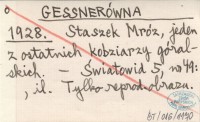 GESSNERÓWNA
1928. Staszek Mróz, jeden
z ostatnich kobziarzy góral-
skich. — Światowid 5, no 49:
, il. Tylko reprod. obrazu.
bJ/016/1990